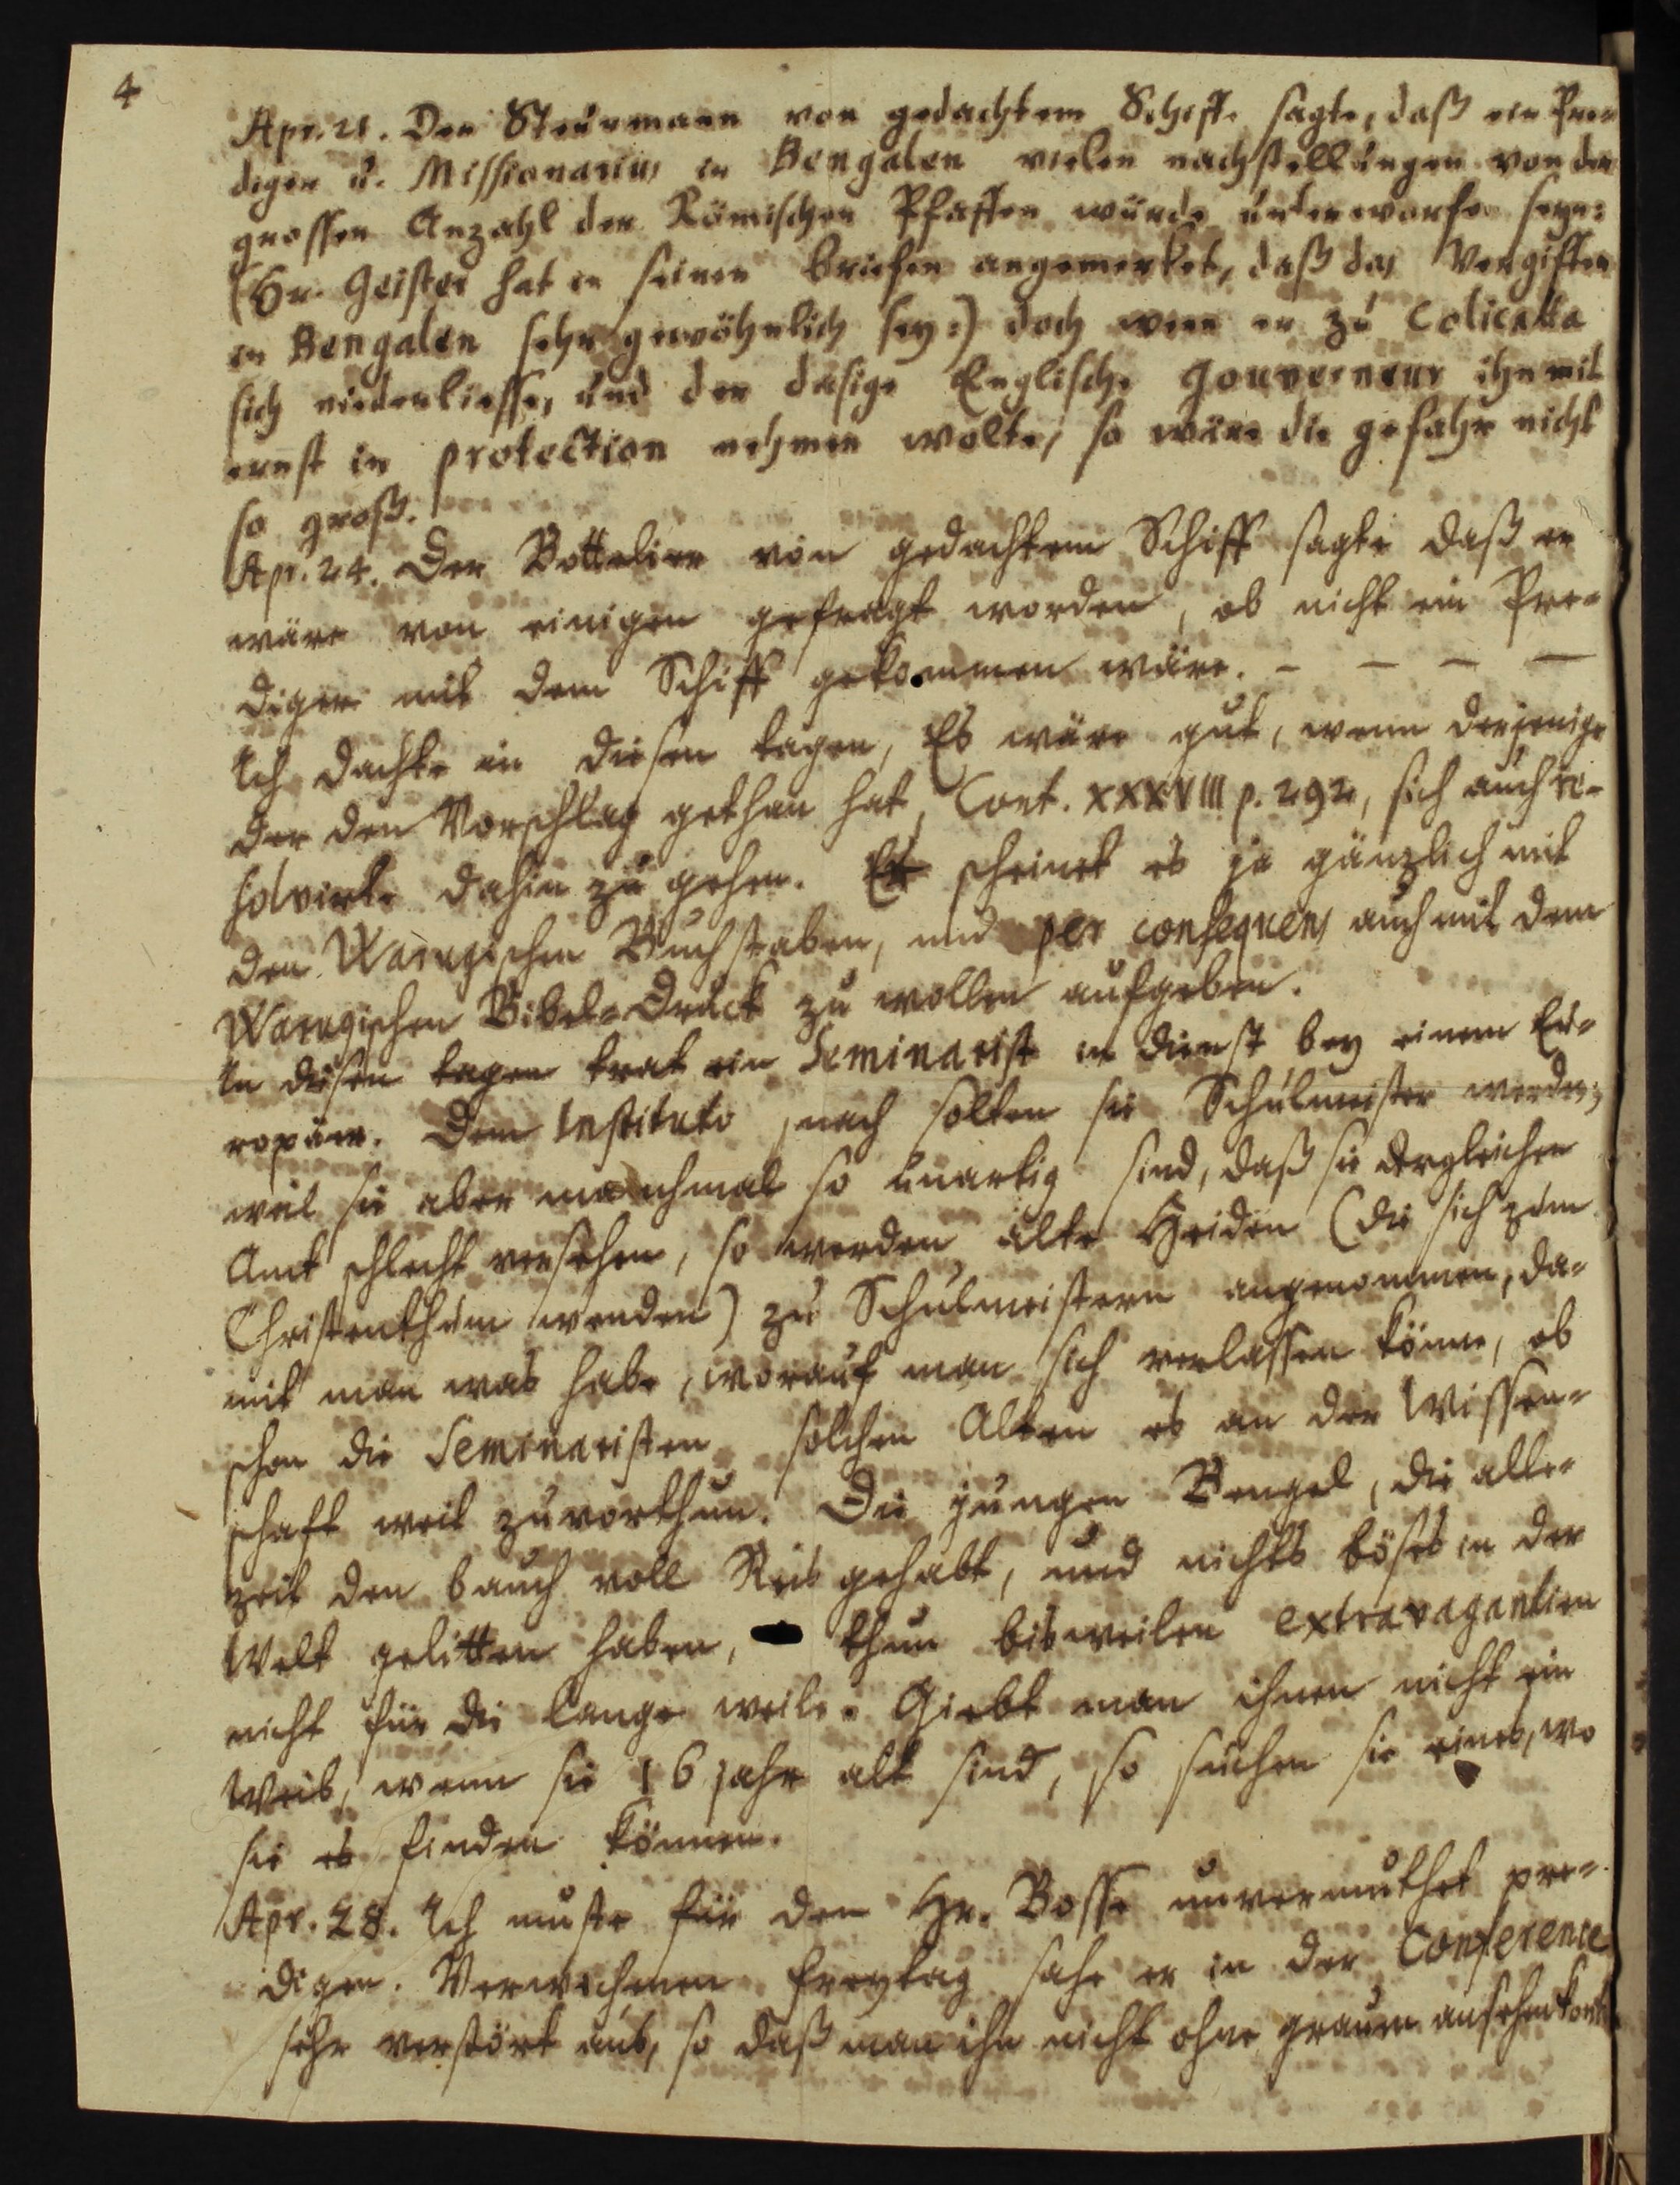 4
Apr. 21. Der Steurmann von gedachtem Schiffe sagte, daß ein Pre-
diger u. Missionarius in Bengalen vielen nachstellungen von der
grossen Anzahl der Römischen Pfaffen würde unterworfen seyn:
(Hr. Geister hat in seinen briefen angemerket, daß das Vergiften
in Bengalen sehr gewöhnlich sey:) doch wenn er zu Colicatta
sich niederliesse, und der dasige Englische Gouverneur ihn mit
ernst in protection nehmen wolte, so wäre die gefahr nicht
so groß.
Apr. 24. Der Bottelier von gedachtem Schiff sagte daß er
wäre von einigen gefragt worden, ob nicht ein Pre-
diger mit dem Schiff gekommen wäre. - - - -
Ich dachte in diesen tagen, Es wäre gut, wenn derjenige
der den Vorschlag gethan hat, Cont. XXXVIII p. 292, sich auch re-
solvirte dahin zu gehen. Er scheinet es ja gänzlich mit
den Warugischen Buchstaben, und per consequens auch mit dem
Warugischen Bibel-Druck zu wollen aufgeben.
In diesen tagen trat ein Seminarist in dienst bey einem Eu-
ropäer. Dem Instituto nach solten sie Schulmeister werden;
weil sie aber manchmal so unartig sind, daß sie dergleichen
Amt schlecht versehen, so werden alte Heiden (die sich zum
Christenthum wenden) zu Schulmeistern angenommen, da-
mit man was habe, worauf man sich verlassen könne, ob
schon die Seminaristen solchen Alten es an der Wissen-
schaft weit zuvorthun. Die jungen Bengel, die alle-
zeit den bauch voll Reis gehabt, und nichts böses in der
Welt gelitten haben, thun bisweilen extravagantien
nicht für die lange weile. Giebt man ihnen nicht ein
Weib, wenn sie 16 jahr alt sind, so suchen sie eines, wo
sie es finden können.
Apr. 28. Ich muste für den Hr. Bosse unvermuthet pre-
digen. Verwichenen freytag sahe er in der Conference
sehr verstört aus, so daß man ihn nicht ohne grauen ansehen konte